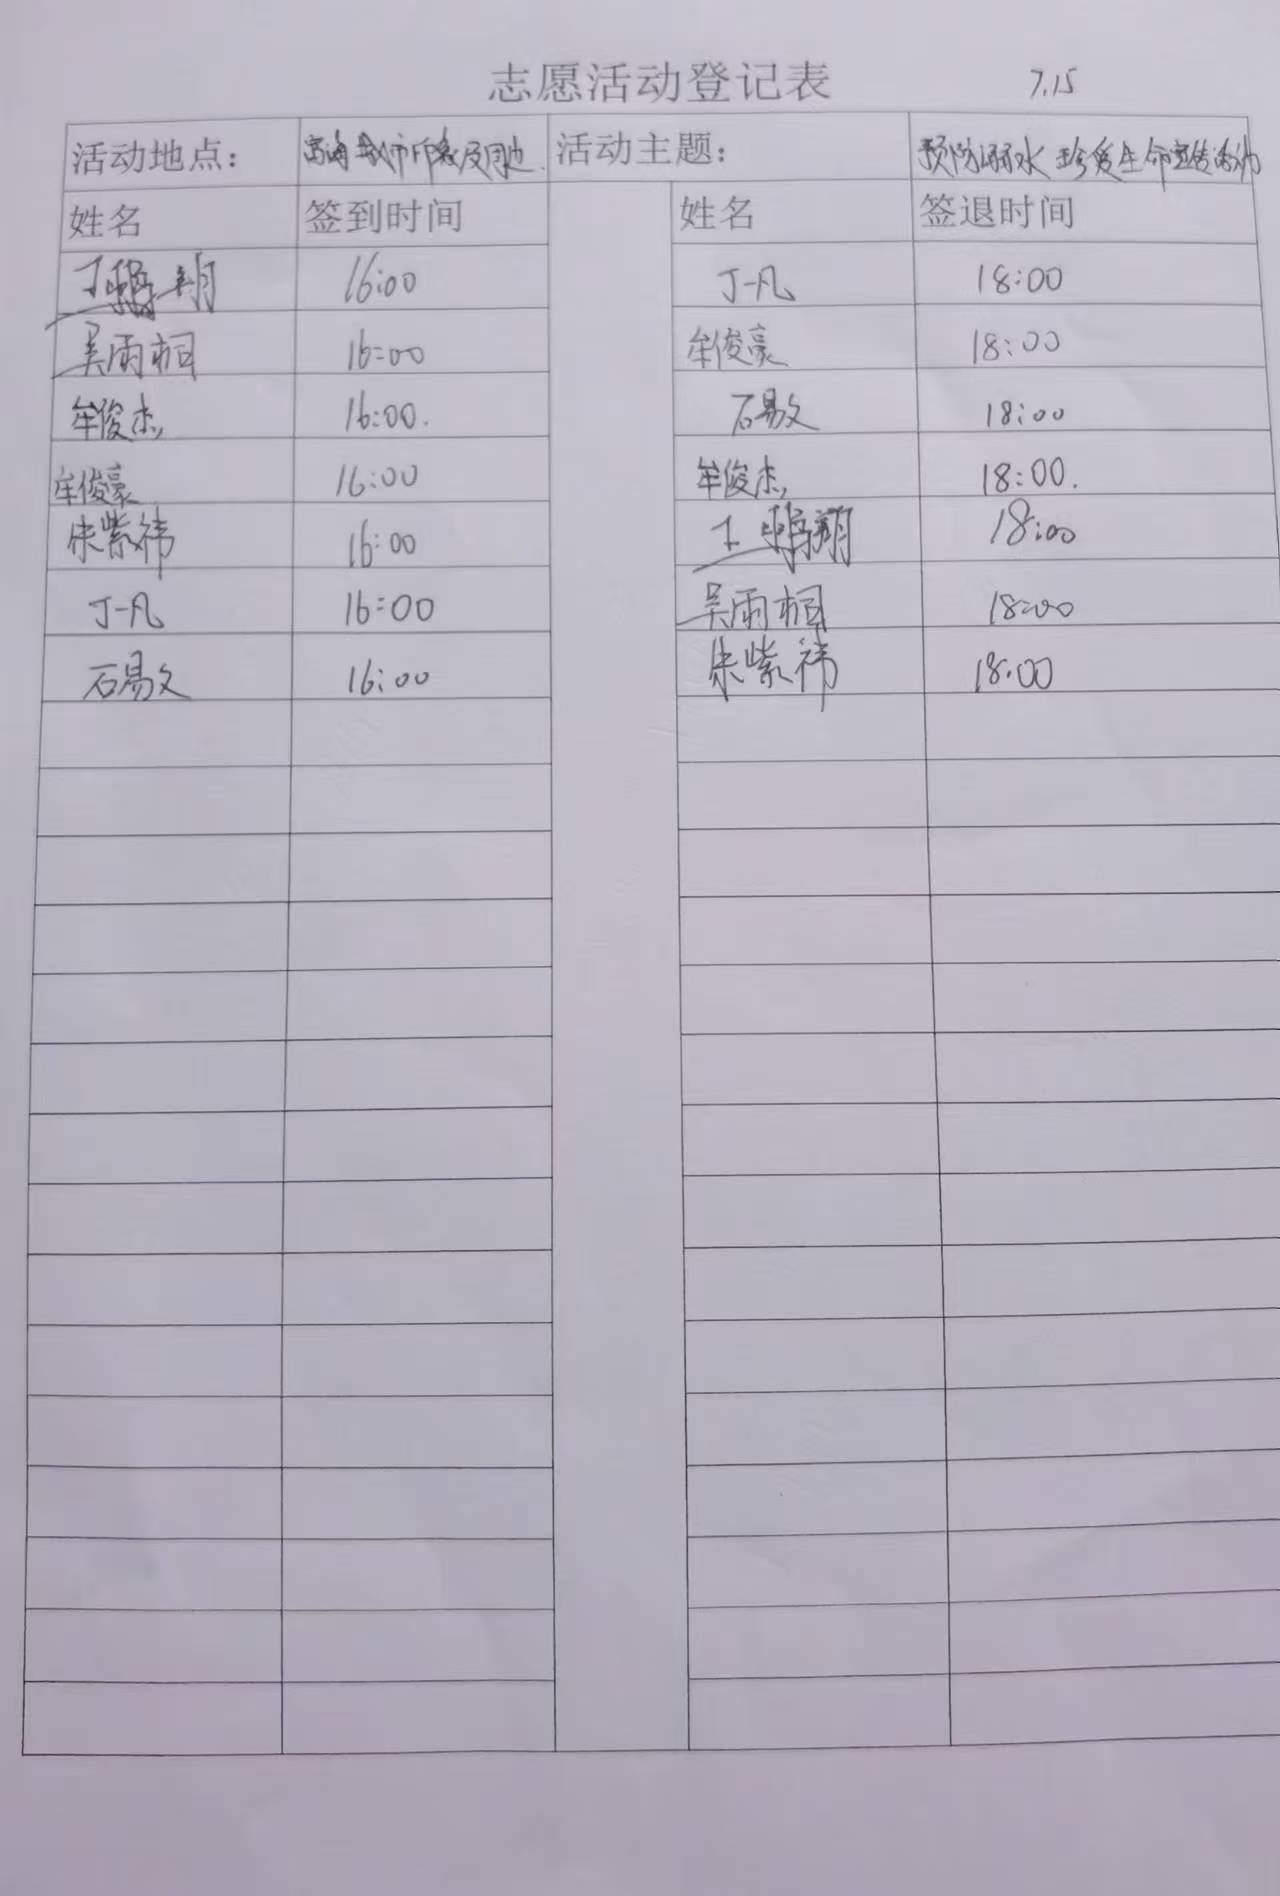 志愿活动登记表 7.15
活动地点: 及周边 活动主题: 预防溺水 珍爱生命宣传活动
姓名 签到时间 姓名 签退时间
16:00 丁一凡 18:00
吴雨桐 16:00 牟俊豪 18:00
牟俊杰 16:00. 石易文 18:00
牟俊豪 16:00 牟俊杰 18:00.
朱紫祎 16:00 18:00
丁一凡 16:00 吴雨桐 18:00
石易文 16:00 朱紫祎 18:00